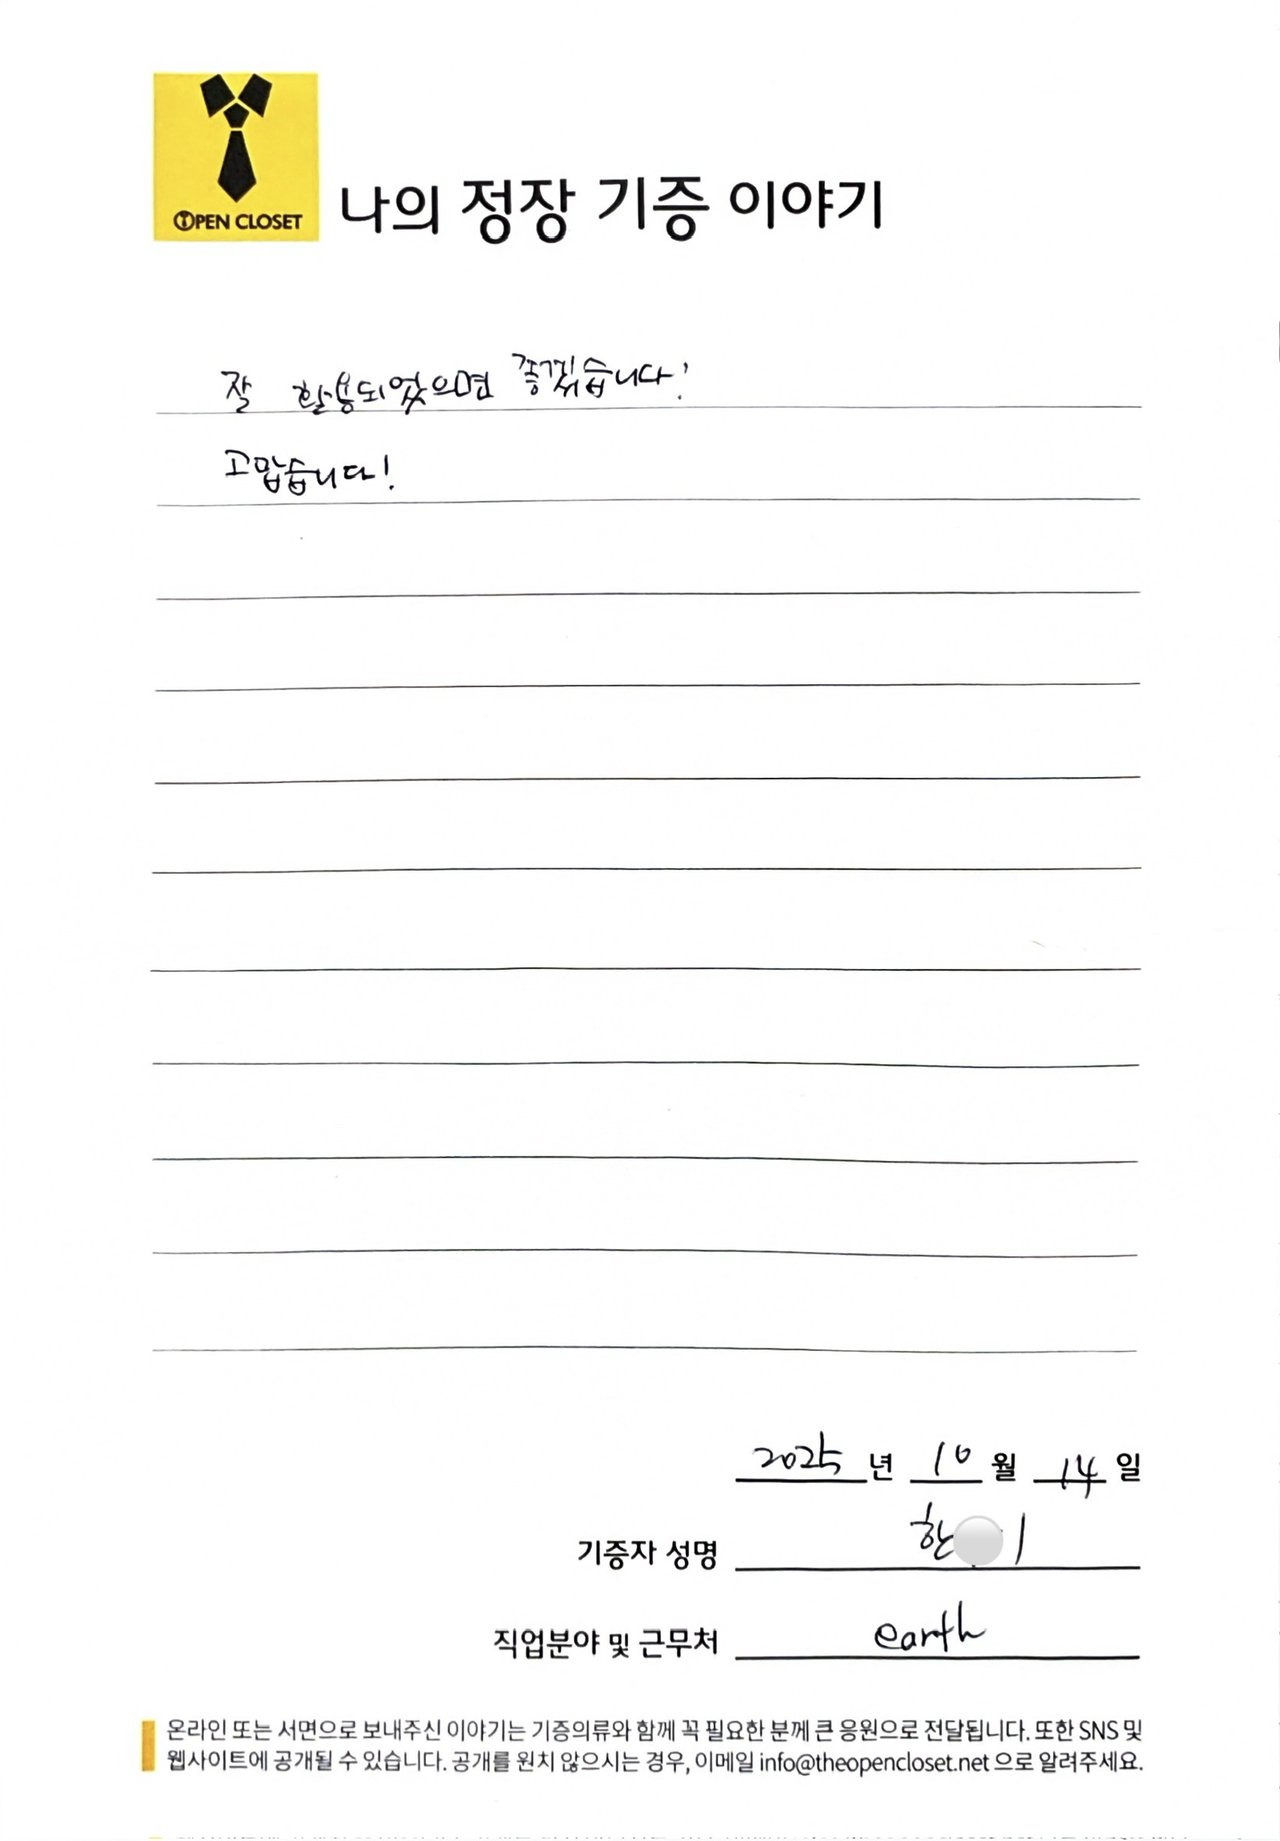 OPEN CLOSET
나의 정장 기증 이야기
잘 활용되었으면 좋겠습니다!
고맙습니다!
2025 년 10 월 14 일
기증자 성명 한
직업분야 및 근무처 earth
온라인 또는 서면으로 보내주신 이야기는 기증의류와 함께 꼭 필요한 분께 큰 응원으로 전달됩니다. 또한 SNS 및
웹사이트에 공개될 수 있습니다. 공개를 원치 않으시는 경우, 이메일 info@theopencloset.net 으로 알려주세요.